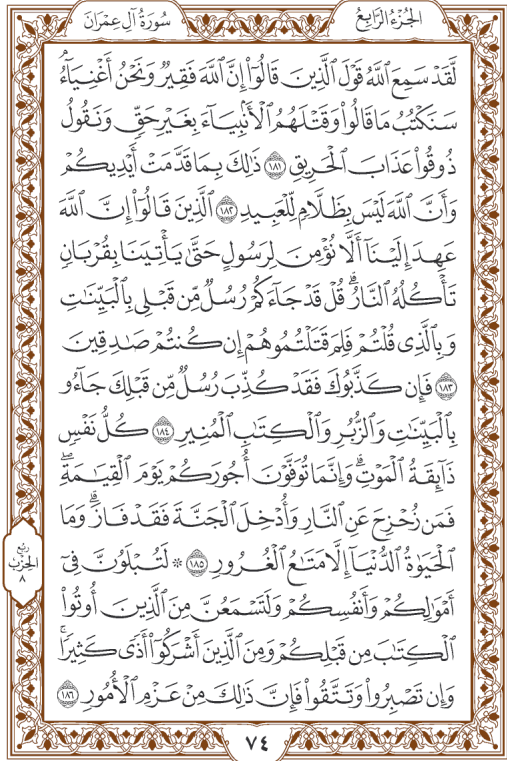 الجزء الرابع
سورة آل عمران
لَّقَدْ سَمِعَ ٱللَّهُ قَوْلَ ٱلَّذِينَ قَالُوٓا۟ إِنَّ ٱللَّهَ فَقِيرٌ وَنَحْنُ أَغْنِيَآءُ ۘ
سَنَكْتُبُ مَا قَالُوا۟ وَقَتْلَهُمُ ٱلْأَنۢبِيَآءَ بِغَيْرِ حَقٍّ وَنَقُولُ
ذُوقُوا۟ عَذَابَ ٱلْحَرِيقِ ١٨١ ذَٰلِكَ بِمَا قَدَّمَتْ أَيْدِيكُمْ
وَأَنَّ ٱللَّهَ لَيْسَ بِظَلَّامٍ لِّلْعَبِيدِ ١٨٢ ٱلَّذِينَ قَالُوٓا۟ إِنَّ ٱللَّهَ
عَهِدَ إِلَيْنَآ أَلَّا نُؤْمِنَ لِرَسُولٍ حَتَّىٰ يَأْتِيَنَا بِقُرْبَانٍ
تَأْكُلُهُ ٱلنَّارُ ۗ قُلْ قَدْ جَآءَكُمْ رُسُلٌ مِّن قَبْلِى بِٱلْبَيِّنَٰتِ
وَبِٱلَّذِى قُلْتُمْ فَلِمَ قَتَلْتُمُوهُمْ إِن كُنتُمْ صَٰدِقِينَ
١٨٣ فَإِن كَذَّبُوكَ فَقَدْ كُذِّبَ رُسُلٌ مِّن قَبْلِكَ جَآءُو
بِٱلْبَيِّنَٰتِ وَٱلزُّبُرِ وَٱلْكِتَٰبِ ٱلْمُنِيرِ ١٨٤ كُلُّ نَفْسٍ
ذَآئِقَةُ ٱلْمَوْتِ ۗ وَإِنَّمَا تُوَفَّوْنَ أُجُورَكُمْ يَوْمَ ٱلْقِيَٰمَةِ ۖ
فَمَن زُحْزِحَ عَنِ ٱلنَّارِ وَأُدْخِلَ ٱلْجَنَّةَ فَقَدْ فَازَ ۗ وَمَا
ٱلْحَيَوٰةُ ٱلدُّنْيَآ إِلَّا مَتَٰعُ ٱلْغُرُورِ ١٨٥ ۞ لَتُبْلَوُنَّ فِىٓ
أَمْوَٰلِكُمْ وَأَنفُسِكُمْ وَلَتَسْمَعُنَّ مِنَ ٱلَّذِينَ أُوتُوا۟
ٱلْكِتَٰبَ مِن قَبْلِكُمْ وَمِنَ ٱلَّذِينَ أَشْرَكُوٓا۟ أَذًى كَثِيرًا ۚ
وَإِن تَصْبِرُوا۟ وَتَتَّقُوا۟ فَإِنَّ ذَٰلِكَ مِنْ عَزْمِ ٱلْأُمُورِ ١٨٦
ربع
الحزب
٨
٧٤